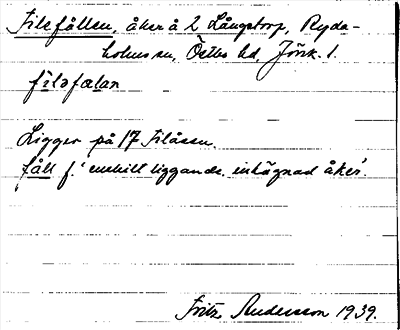 Filefållen, åker å 2 Långstorp, Ryda-
holms sn, Östbo hd, Jönk. l.
filəfælan
Ligger på 17 Filåsen.
fåll f. 'enskilt liggande inhägnad åker'.
Fritz Andersson 1939.